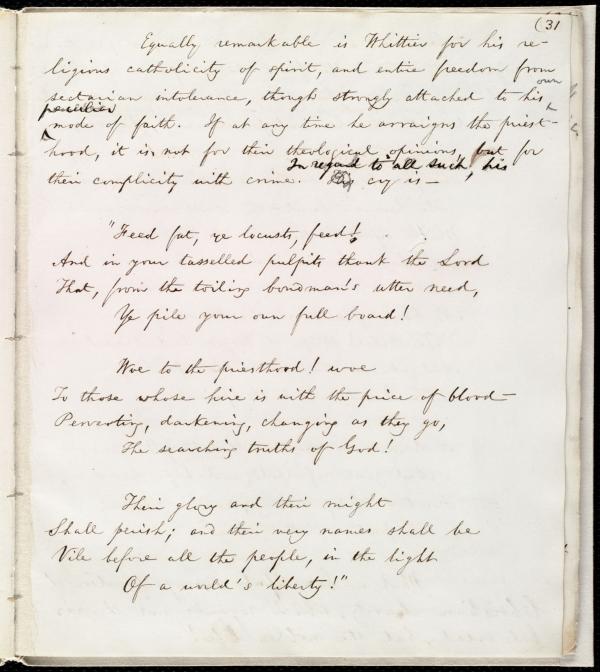 (31
Equally remarkable is Whittier for his re-
ligious catholicity of spirit, and entire freedom from
sectarian intolerance, though strongly attached to his own
peculiar mode of faith. If at any time he arraigns the priest-
hood, it is not for their theological opinions, but for
their complicity with crime. In regard to all such, his cry is—
"Feed fat, ye locusts, feed!
And in your tasselled pulpits thank the Lord
That, from the toiling bondman's utter need,
Ye pile your own full board!
Woe to the priesthood! woe
To those whose hire is with the price of blood—
Perverting, darkening, changing as they go,
The searching truths of God!
Their glory and their might
Shall perish; and their very names shall be
Vile before all the people, in the light
Of a world's liberty!"